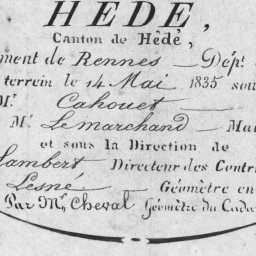 HÉDÉ,
Canton de Hédé,
ment de Rennes — Dépt
terrein le 14 Mai 1835 sou
Mr. Cahouet
Mr. Lemarchand — Mai
et sous la Direction de
Lambert Directeur des Contri
Lesné — Géomètre en
Par Mr. Cheval Géomètre du Cada